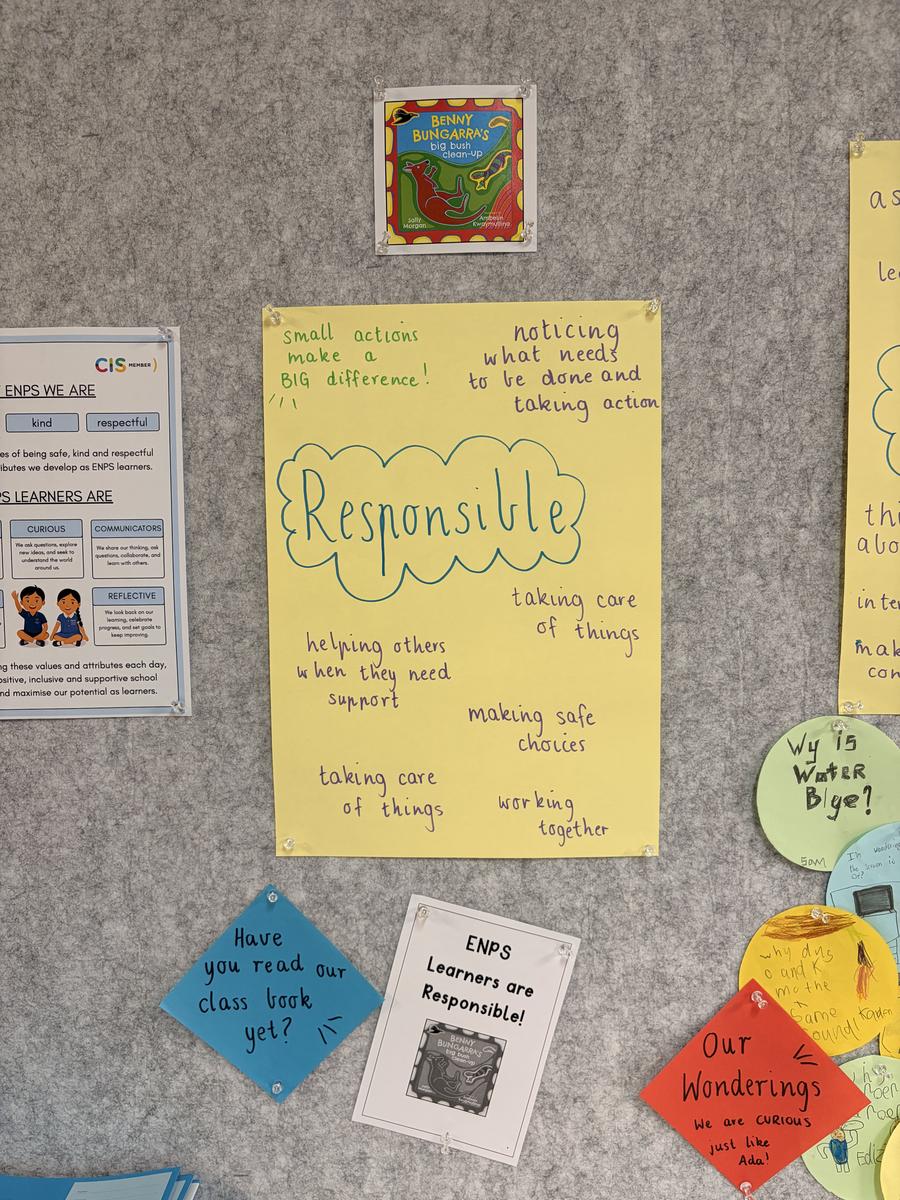 BENNY
BUNGARRA'S
big bush
clean-up
Sally
Morgan
Ambelin
Kwaymullina
small actions
make a
BIG difference!
noticing
what needs
to be done and
taking action
Responsible
taking care
of things
helping others
when they need
support
making safe
choices
taking care
of things
working
together
CIS MEMBER
ENPS WE ARE
kind
respectful
es of being safe, kind and respectful
ibutes we develop as ENPS learners.
PS LEARNERS ARE
CURIOUS
We ask questions, explore
new ideas, and seek to
understand the world
around us.
COMMUNICATORS
We share our thinking, ask
questions, collaborate, and
learn with others.
REFLECTIVE
We look back on our
learning, celebrate
progress, and set goals to
keep improving.
ng these values and attributes each day,
ositive, inclusive and supportive school
nd maximise our potential as learners.
Have
you read our
class book
yet?
ENPS
Learners are
Responsible!
BENNY
BUNGARRA'S
big bush
clean-up
as
le
thi
abo
inter
mak
con
Wy is
Water
Blye?
Sam
I'm wondering
the screen is
why dus
c and K
mathe
Same
sound!
Our
Wonderings
We are CURIOUS
just like
Ada!